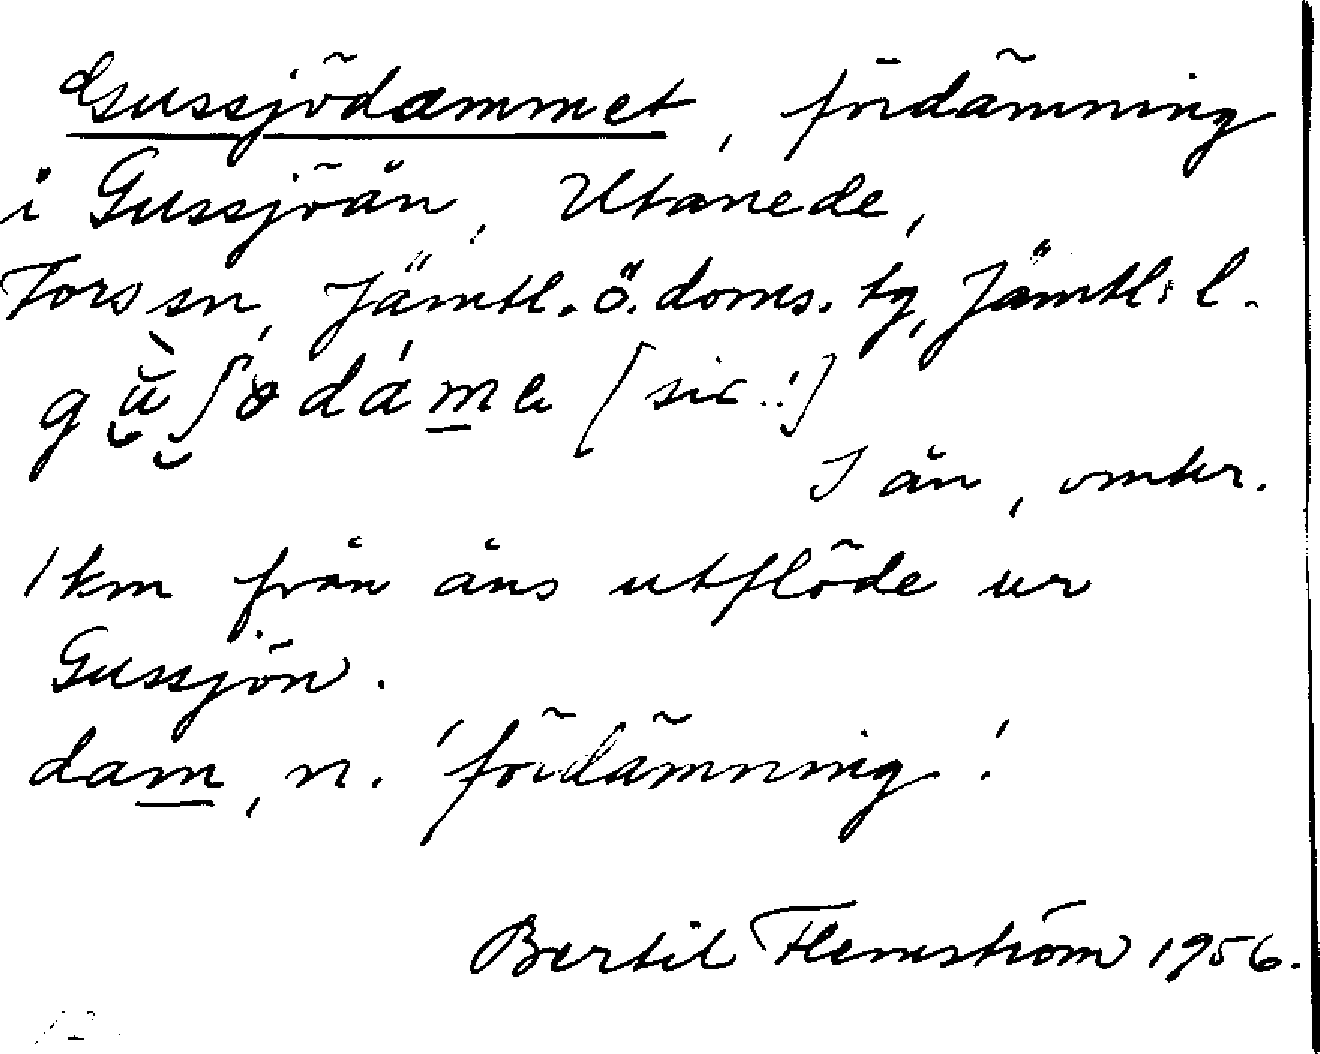 Gussjödammet, fördämning
i Gussjöån, Utanede,
Fors sn, Jämtl. ö. doms. tg, Jämtl:s l.
[sic!]
I ån, omkr.
1 km från åns utflöde ur
Gussjön.
dam, n. 'fördämning'.
Bertil Flemström 1956.